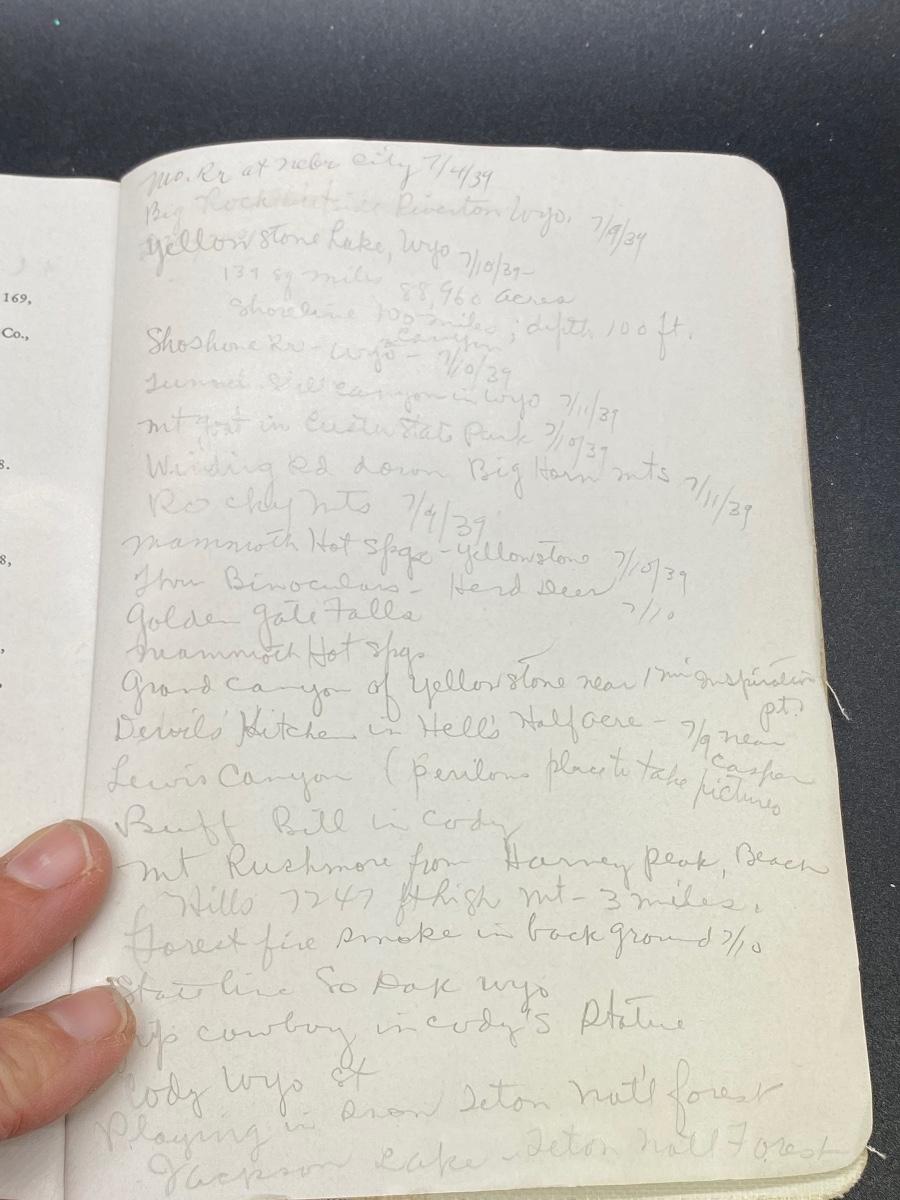 169,
Co.,
8.
8,
Mo. Rr at Nebr City 7/4/39
Big Rock outside Riverton Wyo. 7/9/39
Yellowstone Lake, Wyo 7/10/39
139 sq miles
88,960 acres
Shoreline 100 miles; depth 100 ft.
Canyon
Shoshone Rr - Wyo - 7/10/39
Tunnel Canyon in Wyo 7/11/39
Mt goat in Custer State Park 7/10/39
Winding Rd down Big Horn Mts 7/11/39
Rocky Mts 7/9/39
Mammoth Hot Spgs - Yellowstone 7/10/39
Thru Binoculars - Herd Deer 7/10
Golden Gate Falls
Mammoth Hot Spgs
Grand Canyon of Yellowstone near 1 mi Inspiration
pt.
Devils' Kitchen in Hell's Half acre - 7/9 near
Casper
Lewis Canyon (perilous place to take
pictures
Buff Bill in Cody
Mt Rushmore from Harney Peak,
Hills 7247 ft high Mt - 3 miles.
Forest fire smoke in background 7/10
State line So Dak Wyo
cowboy in Cody's Statue
Cody Wyo St
Playing in Snow Teton Nat'l forest
Jackson Lake - Teton Nat'l Forest